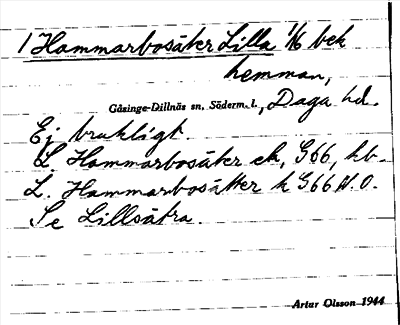 1 Hammarbosäter Lilla 1/6 bek
hemman,
Gåsinge-Dillnäs sn, Söderm. l., Daga hd.
Ej brukligt.
L. Hammarbosäter ek, G66, hb.
L. Hammarbosätter h G66 N.O.
Se Lillsätra.
Artur Olsson 1944